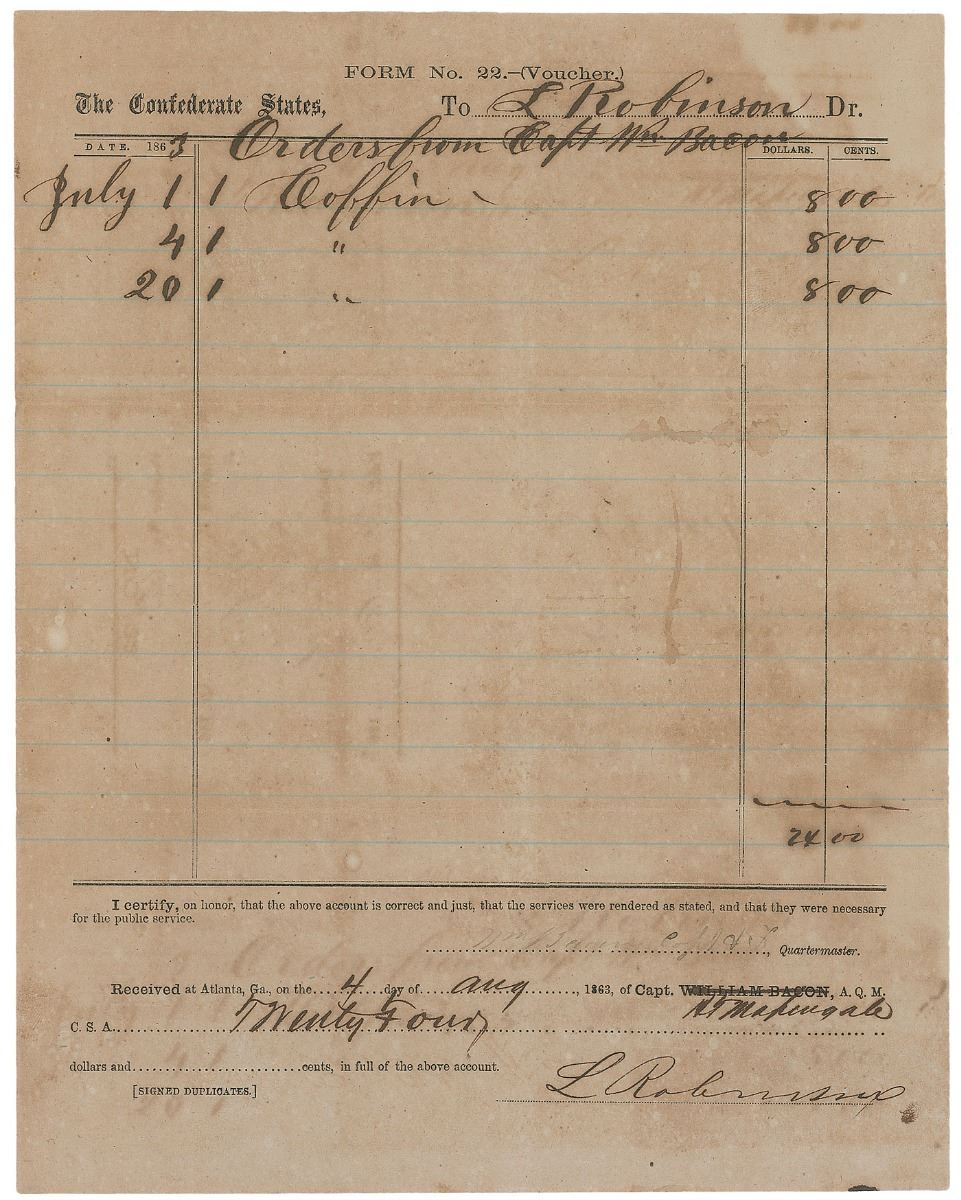 FORM No. 22.—(Voucher.)
The Confederate States, To L Robinson Dr.
Orders from Capt Wm. Bacon
DATE. 1863 DOLLARS. CENTS.
July 1 1 Coffin 8 00
4 1 " 8 00
20 1 " 8 00
24 00
I certify, on honor, that the above account is correct and just, that the services were rendered as stated, and that they were necessary
for the public service.
Wm Bacon Quartermaster.
Received at Atlanta, Ga., on the 4 day of aug, 1863, of Capt. WILLIAM BACON, A. Q. M.
C. S. A. Twenty Four
dollars and cents, in full of the above account.
[SIGNED DUPLICATES.] L Robinson